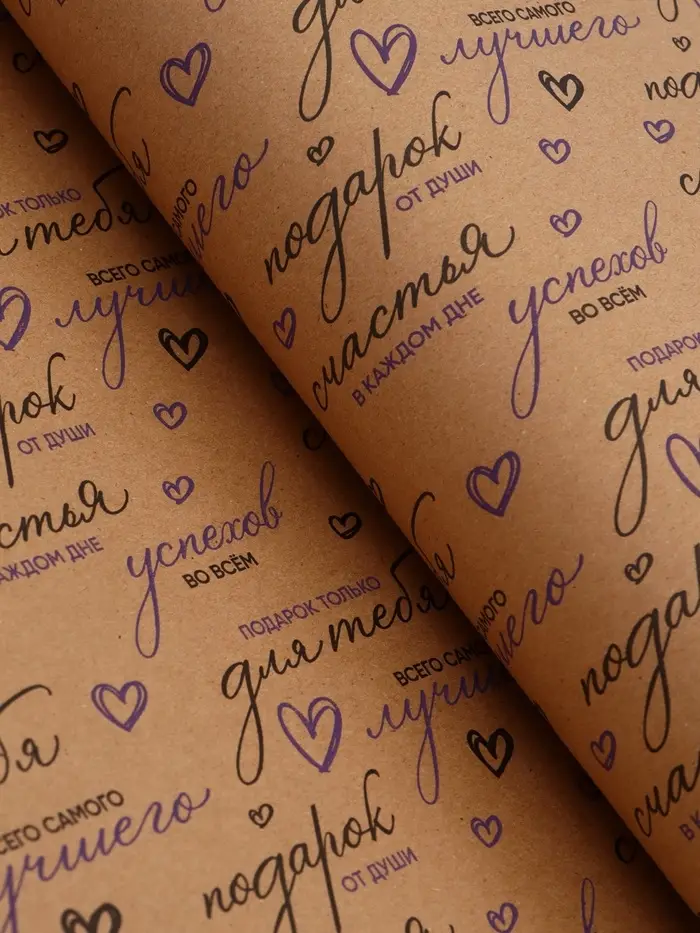 для
ВСЕГО САМОГО
лучшего
подарок
ОТ ДУШИ
счастья
В КАЖДОМ ДНЕ
успехов
ВО ВСЁМ
ПОДАРОК
для
ТОЛЬКО
тебя
ВСЕГО САМ
лучш
рок
ОТ ДУШИ
стья
КАЖДОМ ДНЕ
успехов
ВО ВСЁМ
ПОДАРОК ТОЛЬКО
для тебя
САМОГО
шего
ВСЕГО САМО
лучш
бя
ВСЕГО САМОГО
лучшего
подарок
ОТ ДУШИ
пода
сча
В К